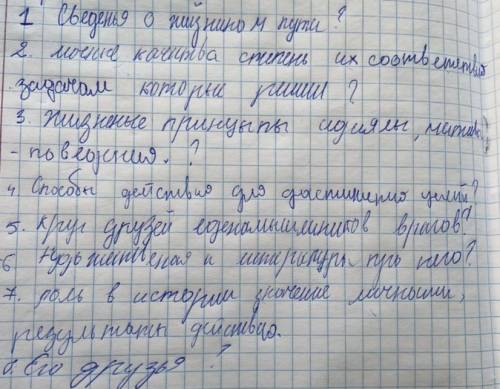 1 Сведенья о жизненом пути?
2. личные качитва степень их соответствия
задачам которые решил?
3. Жизненые принцыпы идиялы, мотивы
- поведения. ?
4 Способы действия для достижения целей?
5. круг друзей еденамышлиников врагов?
6 Художественая и литература про него?
7. роль в истории значение личными,
результаты действия.
8. Его друзья ?